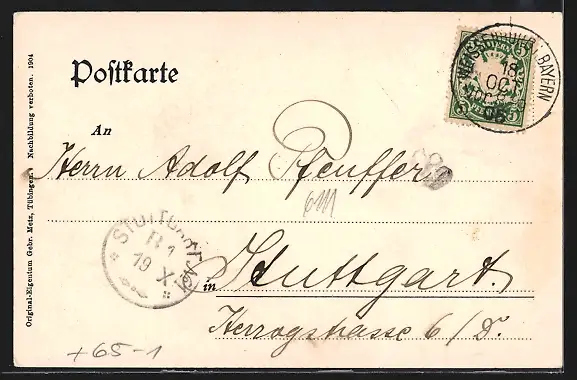 Postkarte
An
Herrn Adolf Pfeuffer
in Stuttgart.
Herzogstrasse 6/D.
+65-1
Original-Eigentum Gebr. Metz, Tübingen. Nachbildung verboten. 1904
BAYERN
18
OCT
STUTTGART
19 X
BAYERN
5 5
5 5